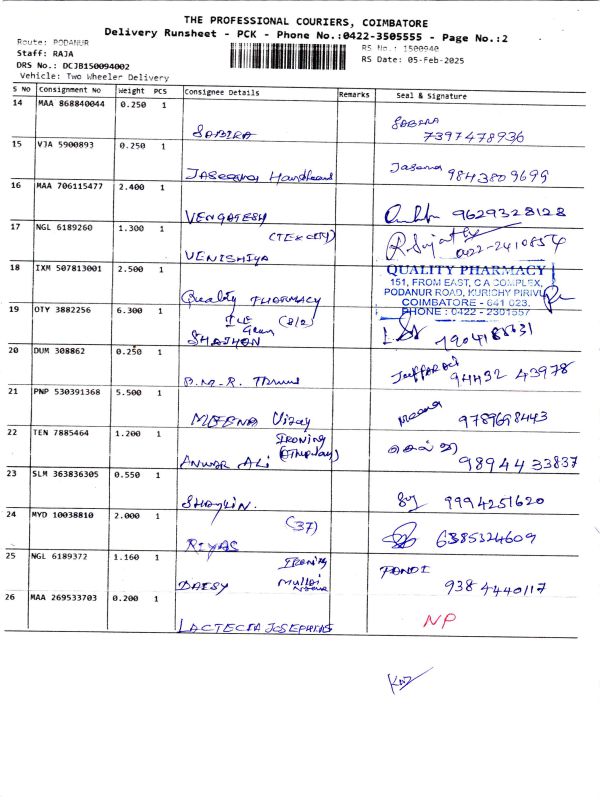 THE PROFESSIONAL COURIERS, COIMBATORE
Delivery Runsheet - PCK - Phone No.:0422-3505555 - Page No.:2
Route: PODANUR
RS No.: 1500940
Staff: RAJA
RS Date: 05-Feb-2025
DRS No.: DCJB150094002
Vehicle: Two Wheeler Delivery
S No Consignment No Weight PCS Consignee Details Remarks Seal & Signature
14 MAA 868840044 0.250 1
SABIRA SABIRA
7397478936
15 VJA 5900893 0.250 1
9843809699
16 MAA 706115477 2.400 1
VENGATESH 9629328128
17 NGL 6189260 1.300 1
(TEX CITY)
VENISHIYA 0422-2410854
18 IXM 507813001 2.500 1
QUALITY PHARMACY
151, FROM EAST, C A COMPLEX,
PODANUR ROAD, KURICHY PIRIVU
COIMBATORE - 641 023.
PHONE : 0422 - 2301557
Quality PHARMACY
19 OTY 3882256 6.300 1
SHAJHON
20 DUM 308862 0.250 1
94432 43978
21 PNP 530391368 5.500 1
MEENA Vijay Meena 9789698443
22 TEN 7885464 1.200 1
IRONING
ANWAR ALI 98944 33837
23 SLM 363836305 0.550 1
SHAYLIN. 9994251620
24 MYD 10038810 2.000 1
(37)
RIYAS 6385324609
25 NGL 6189372 1.160 1
Ironing PANDI
DAISY Mullai 938 4440117
26 MAA 269533703 0.200 1
NP